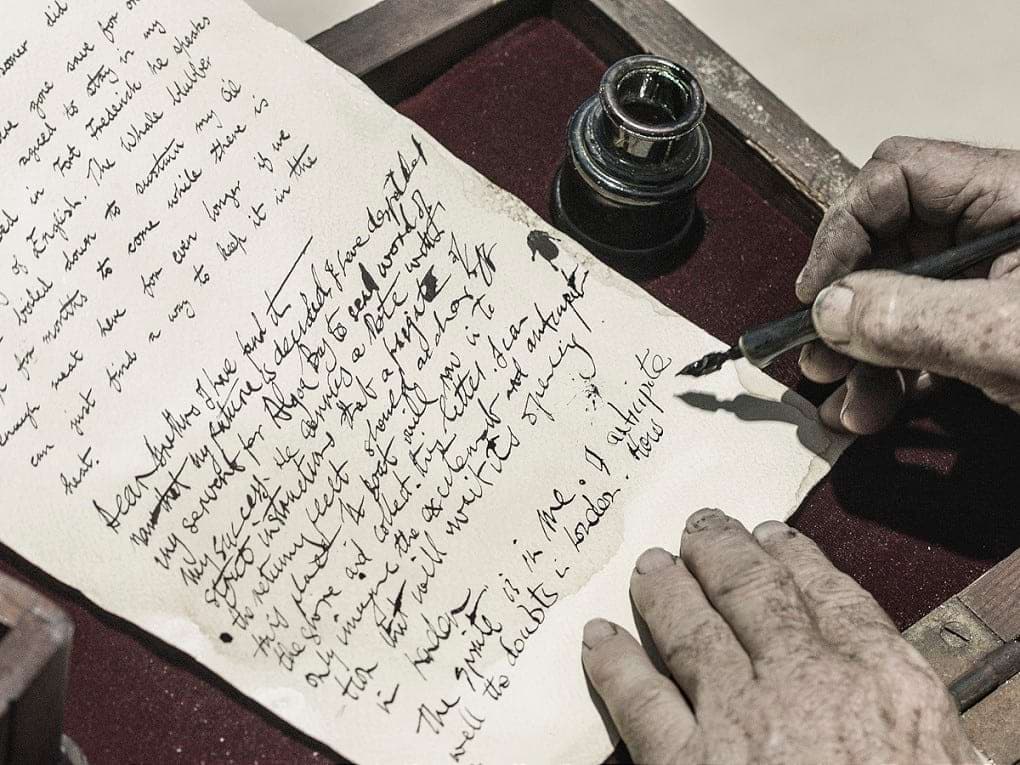 sooner did
zone save for on
agreed to stay in my
in Fort Frederick he speaks
of English. The Whale blubber
boiled down to sustain my oil
for months to come while there is
enough meat here for even longer if we
can just find a way to keep it in the
heat.
Dear brethros of hre and th
that my future is decided. I have despatched
my servant for Algoa Bay to word of
my success. He carries a note with
strict instructions that a frigate
the returning feet should at
this place. The boat will in to
the shore and collect. This letter I can
only imagine the excitement and anticipa
tion that will write its opening
in London
The spirite is in me. I anticipate
well the doubts in London. How